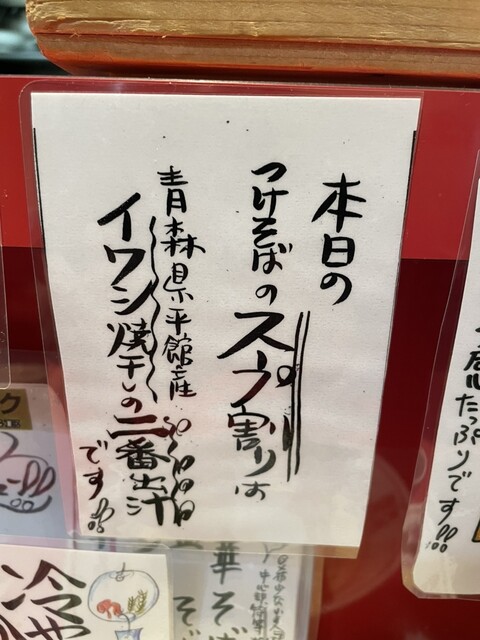 本日の
つけそばのスープ割りは
青森県平館産
イワシ焼干しの二番出汁
です!!
たっぷりです!!
冷や
華そば